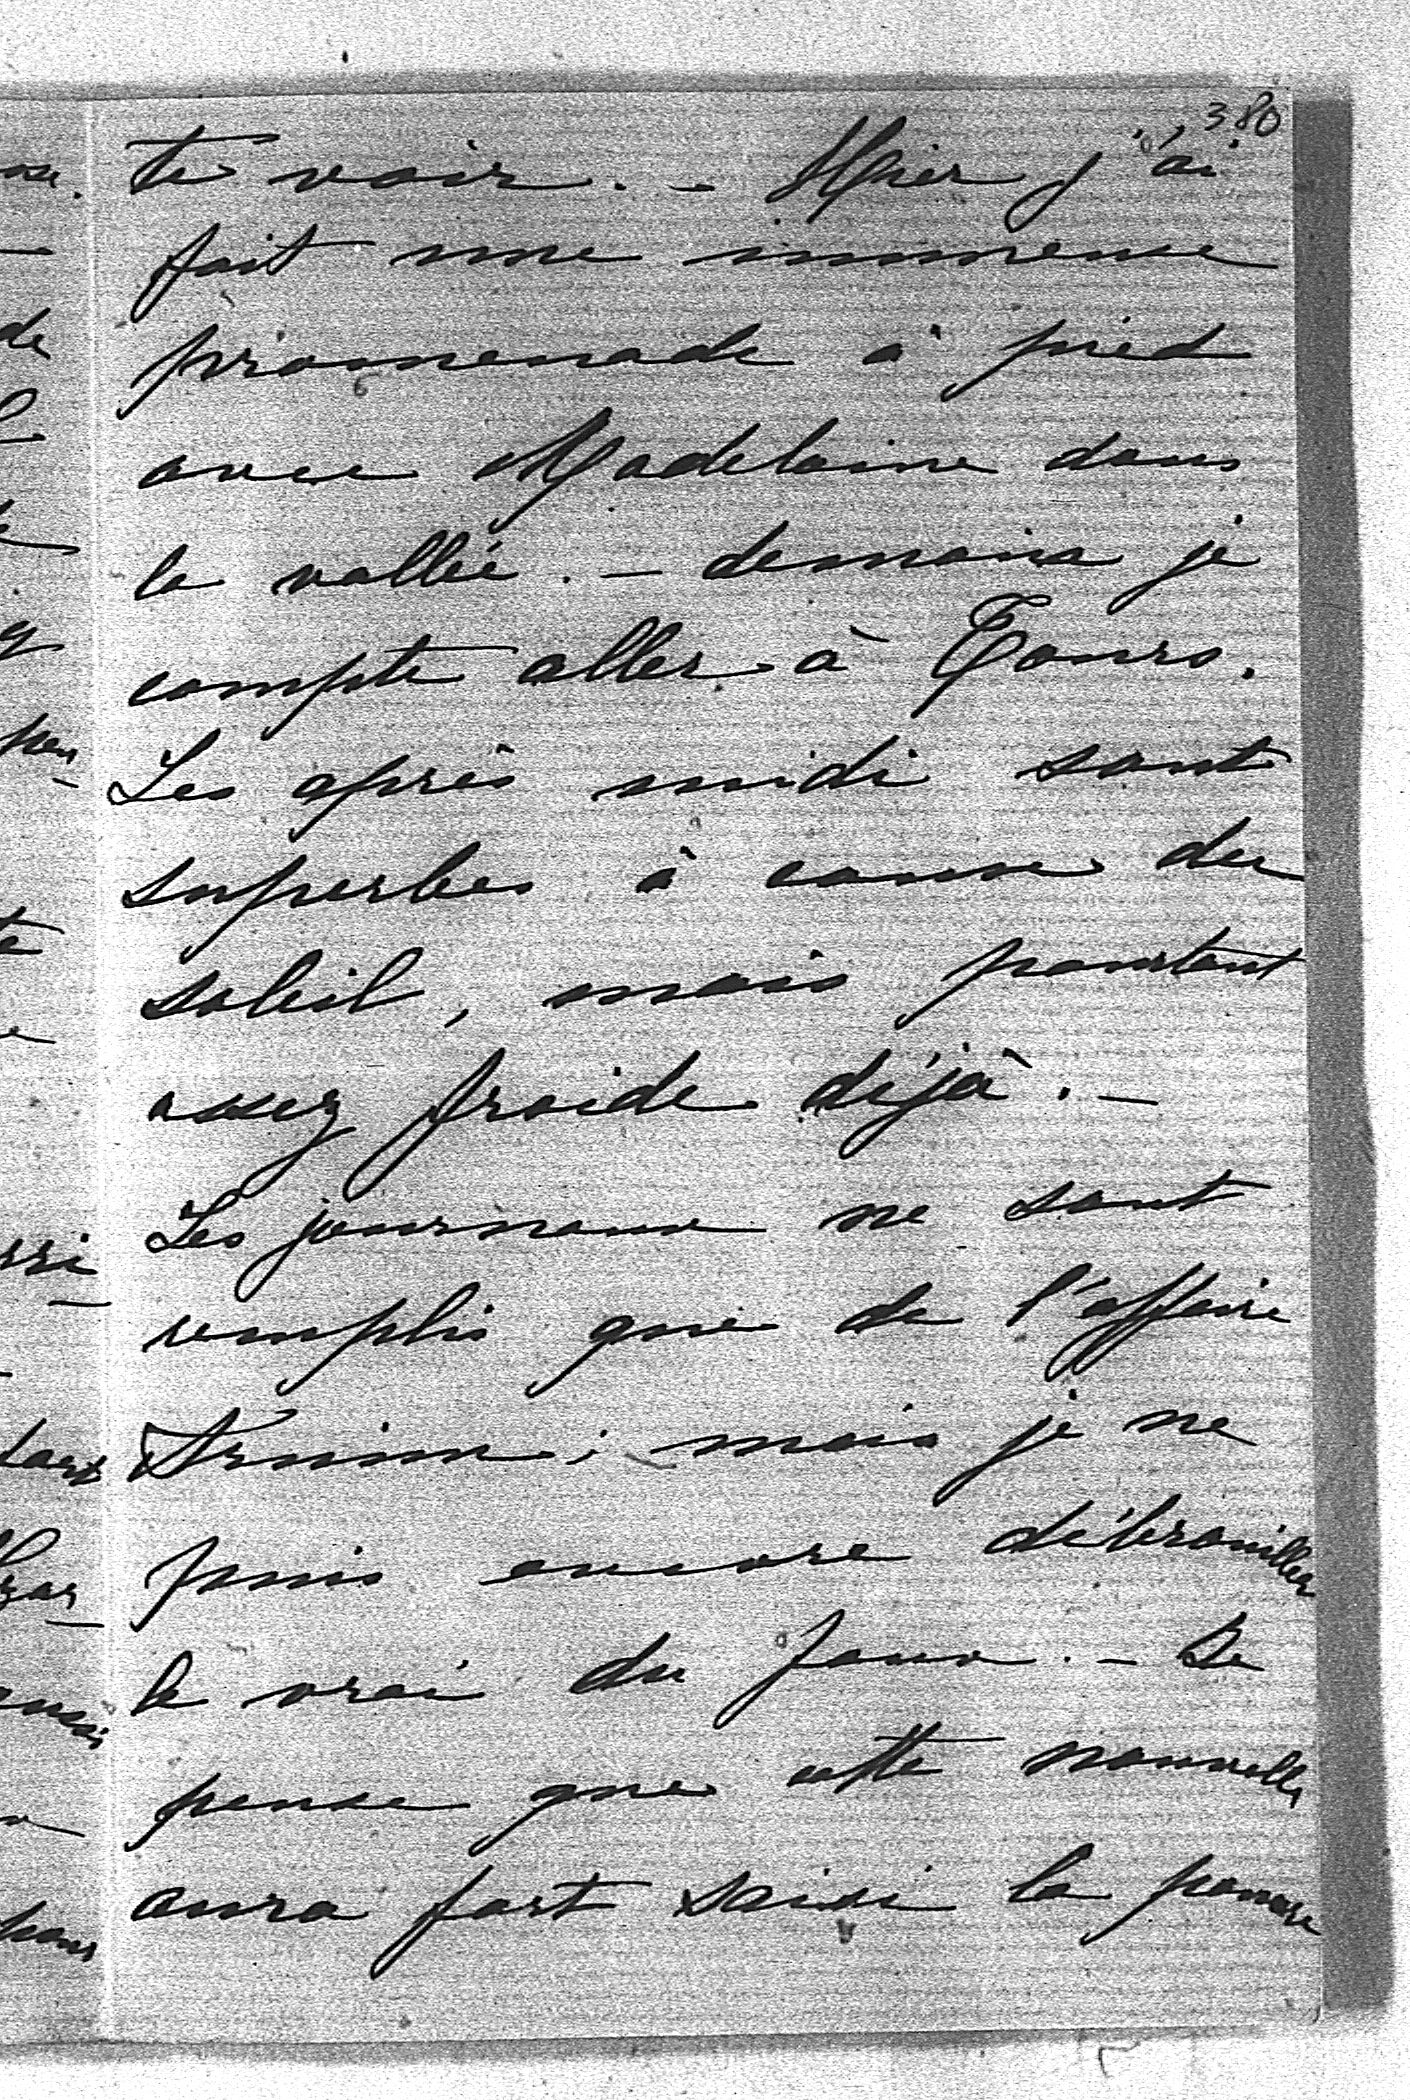 380
te voir. - Hier j'ai
fait une immense
promenade à pied
avec Madelaine dans
la vallée. - demain je
compte aller à Tours.
Les après midi sont
superbes à cause du
soleil, mais pourtant
assez froide déjà. -
Les journaux ne sont
remplis que de l'affaire
Arnim; mais je ne
puis encore débrouiller
le vrai du faux. - Je
pense que cette nouvelle
aura fort saisi la pauvre